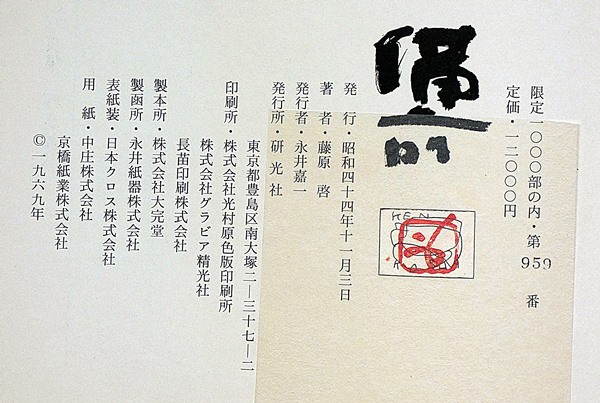 限定一〇〇〇部の内・第959番
定価・一二〇〇〇円
KEN
発 行・昭和四十四年十一月三日
著 者・藤原 啓
発行者・永井嘉一
発行所・研光社
東京都豊島区南大塚二―三十七―二
印刷所・株式会社光村原色版印刷所
株式会社グラビア精光社
長苗印刷株式会社
製本所・株式会社大完堂
製函所・永井紙器株式会社
表紙装・日本クロス株式会社
用 紙・中庄株式会社
京橋紙業株式会社
©一九六九年